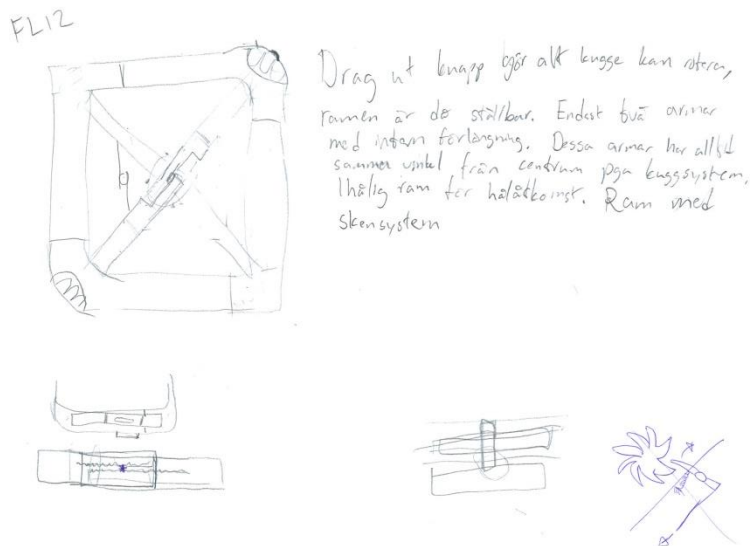 FL12
Drag ut knapp gör att kugge kan rotera,
ramen är då ställbar. Endast två armar
med intern förlängning. Dessa armar har alltid
samma vinkel från centrum pga kuggsystem.
Ihålig ram för hålåtkomst. Ram med
skensystem